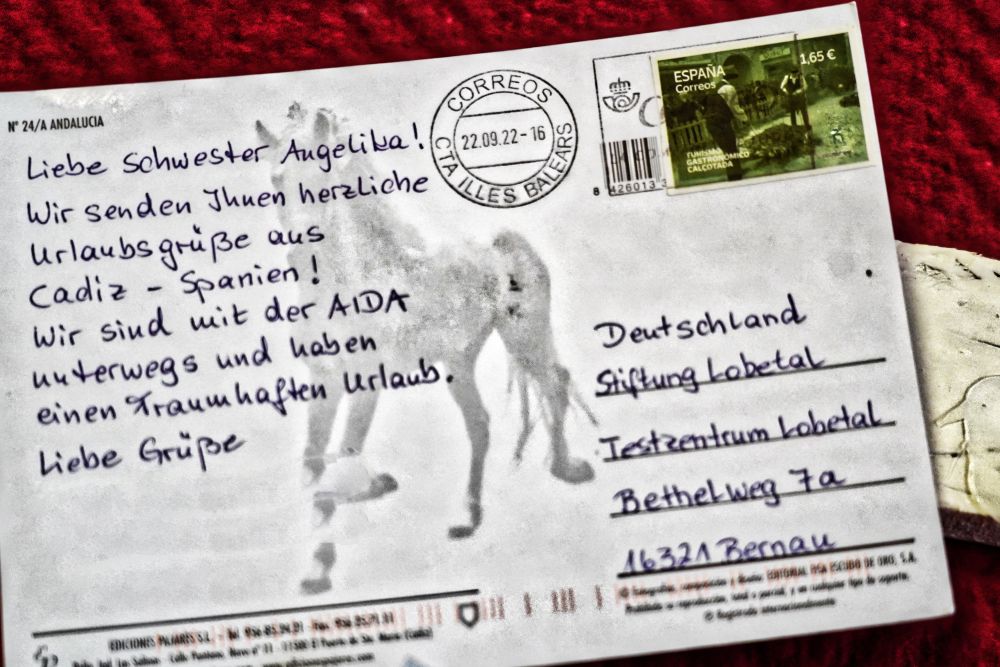 Nº 24/A ANDALUCIA
Liebe Schwester Angelika!
Wir senden Ihnen herzliche
Urlaubsgrüße aus
Cadiz - Spanien!
Wir sind mit der AIDA
unterwegs und haben
einen Traumhaften Urlaub.
Liebe Grüße
CORREOS
22.09.22 - 16
CTA ILLES BALEARS
ESPAÑA
Correos
1,65 €
TURISMO
GASTRONÓMICO
CALÇOTADA
8 426013 3
Deutschland
Stiftung Lobetal
Testzentrum Lobetal
Bethelweg 7a
16321 Bernau
EDICIONES PAJARES S.L.
EDITORIAL FISA ESCUDO DE ORO, S.A.
Prohibida su reproducción, total o parcial, y en cualquier tipo de soporte.
© Registrado internacionalmente